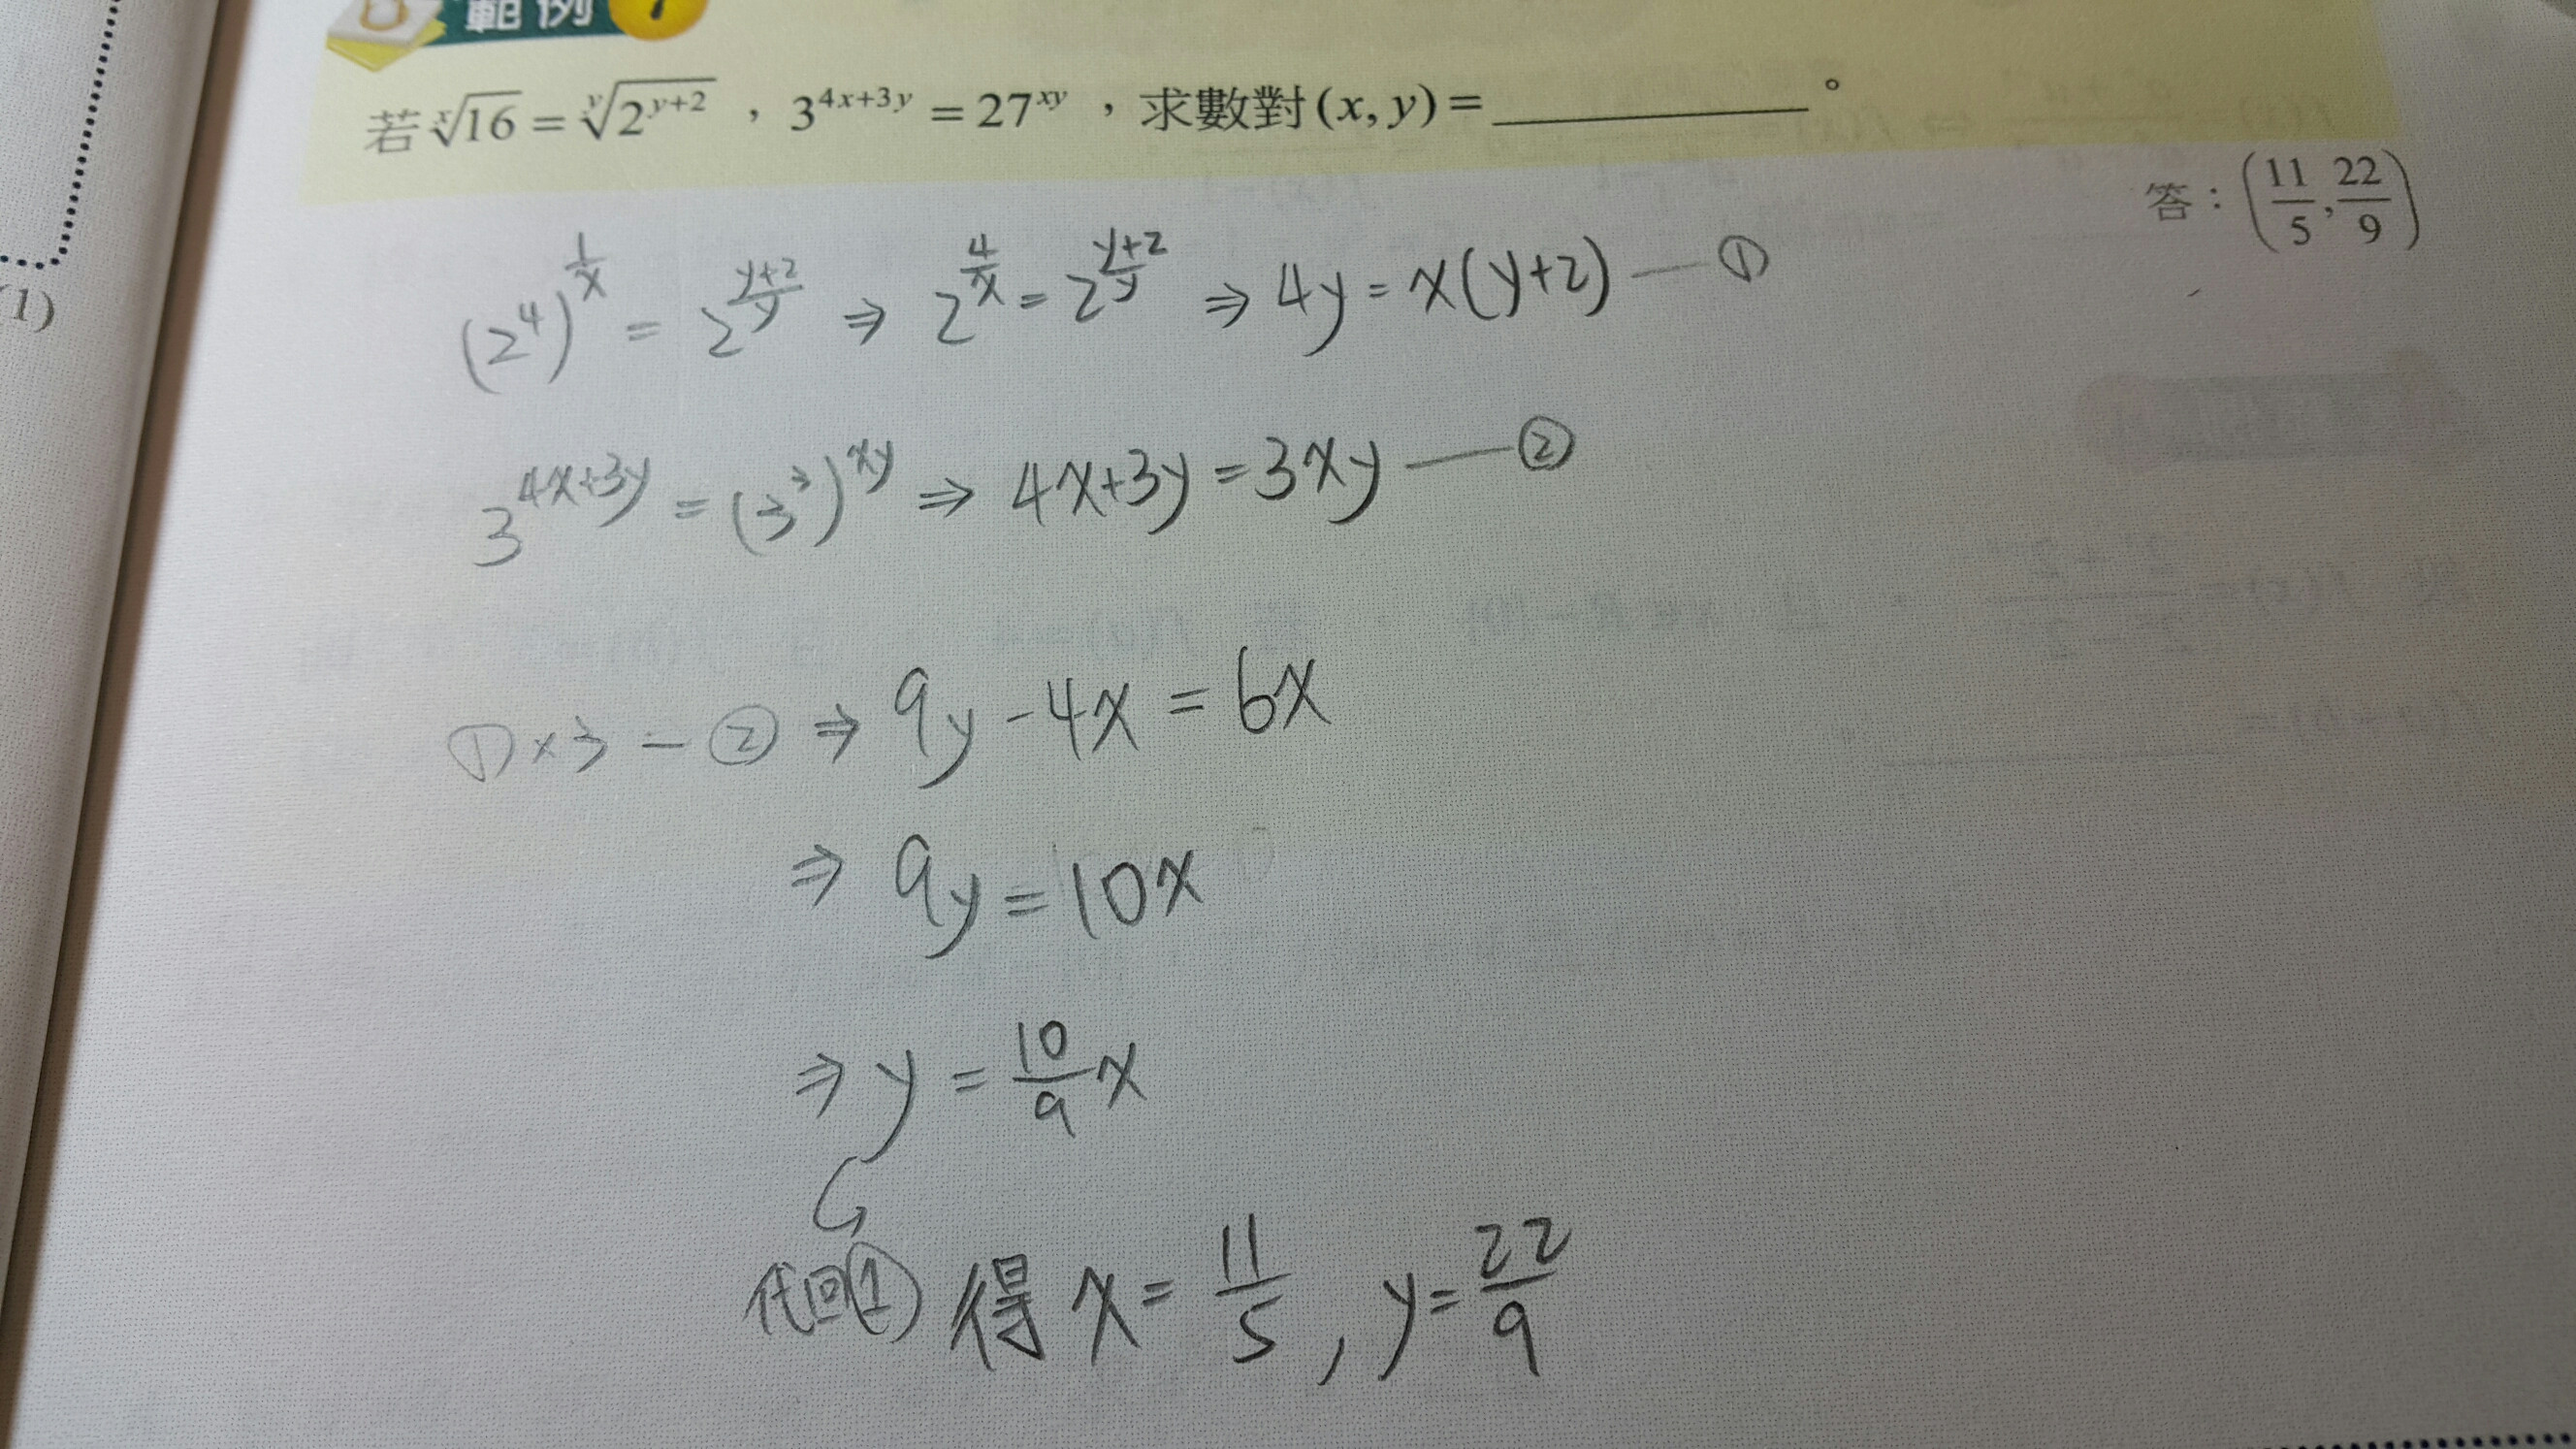 範例 7
若 ˣ√16 = ʸ√(2^(y+2)) ， 3^(4x+3y) = 27^(xy) ，求數對 (x, y) = ________ 。
答：(11/5, 22/9)
(2^4)^(1/x) = 2^((y+2)/y) ⇒ 2^(4/x) = 2^((y+2)/y) ⇒ 4y = x(y+2) — ①
1)
3^(4x+3y) = (3^3)^(xy) ⇒ 4x+3y = 3xy — ②
①×3 − ② ⇒ 9y − 4x = 6x
⇒ 9y = 10x
⇒ y = 10/9 x
代回① 得 x = 11/5 , y = 22/9